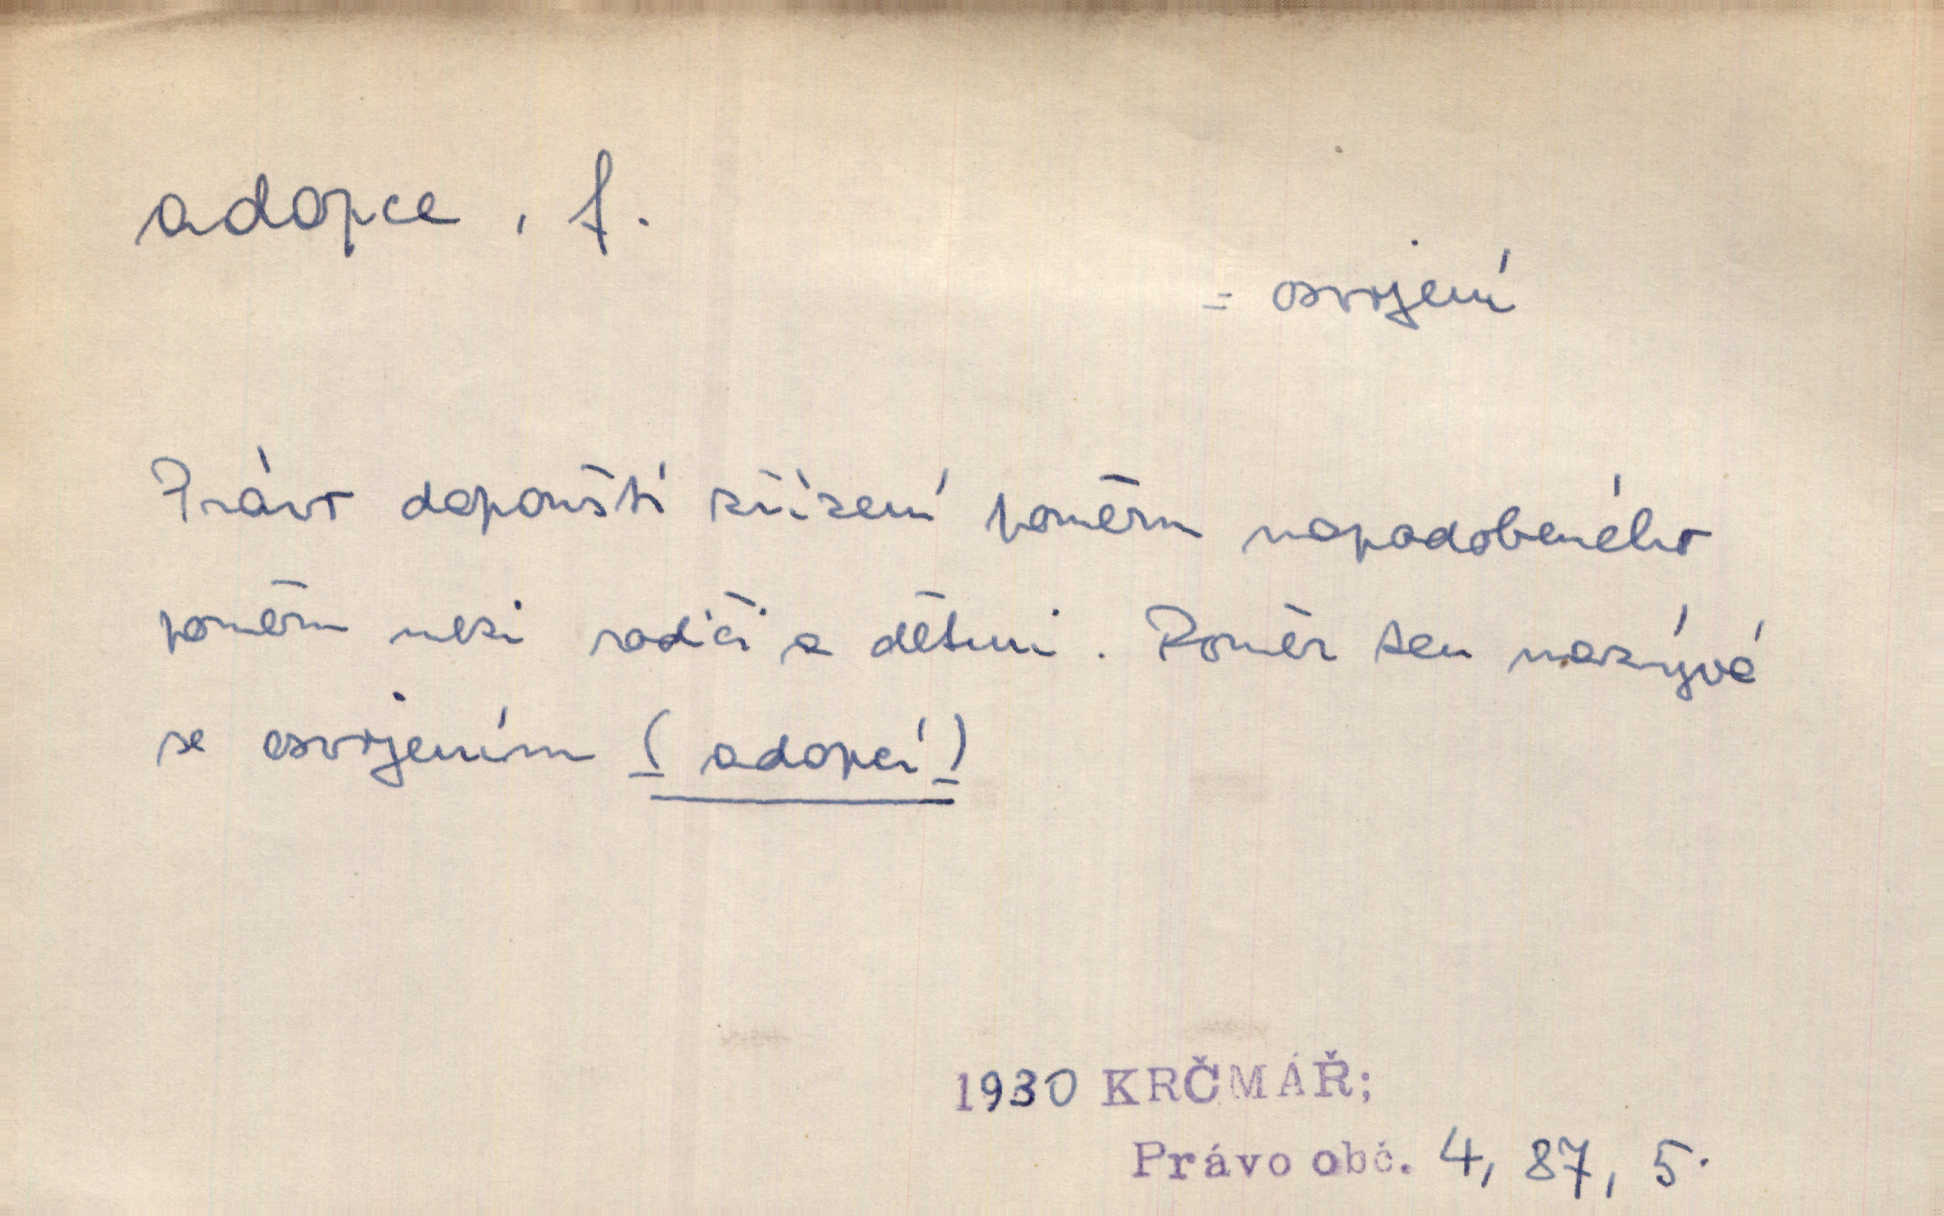 adopce, f.
= osvojení
Právo dopouští zřízení poměru napodobeného
poměru mezi rodiči a dětmi. Poměr ten nazývá
se osvojením (adopcí)
1930 KRČMÁŘ;
Právo obč. 4, 87, 5.